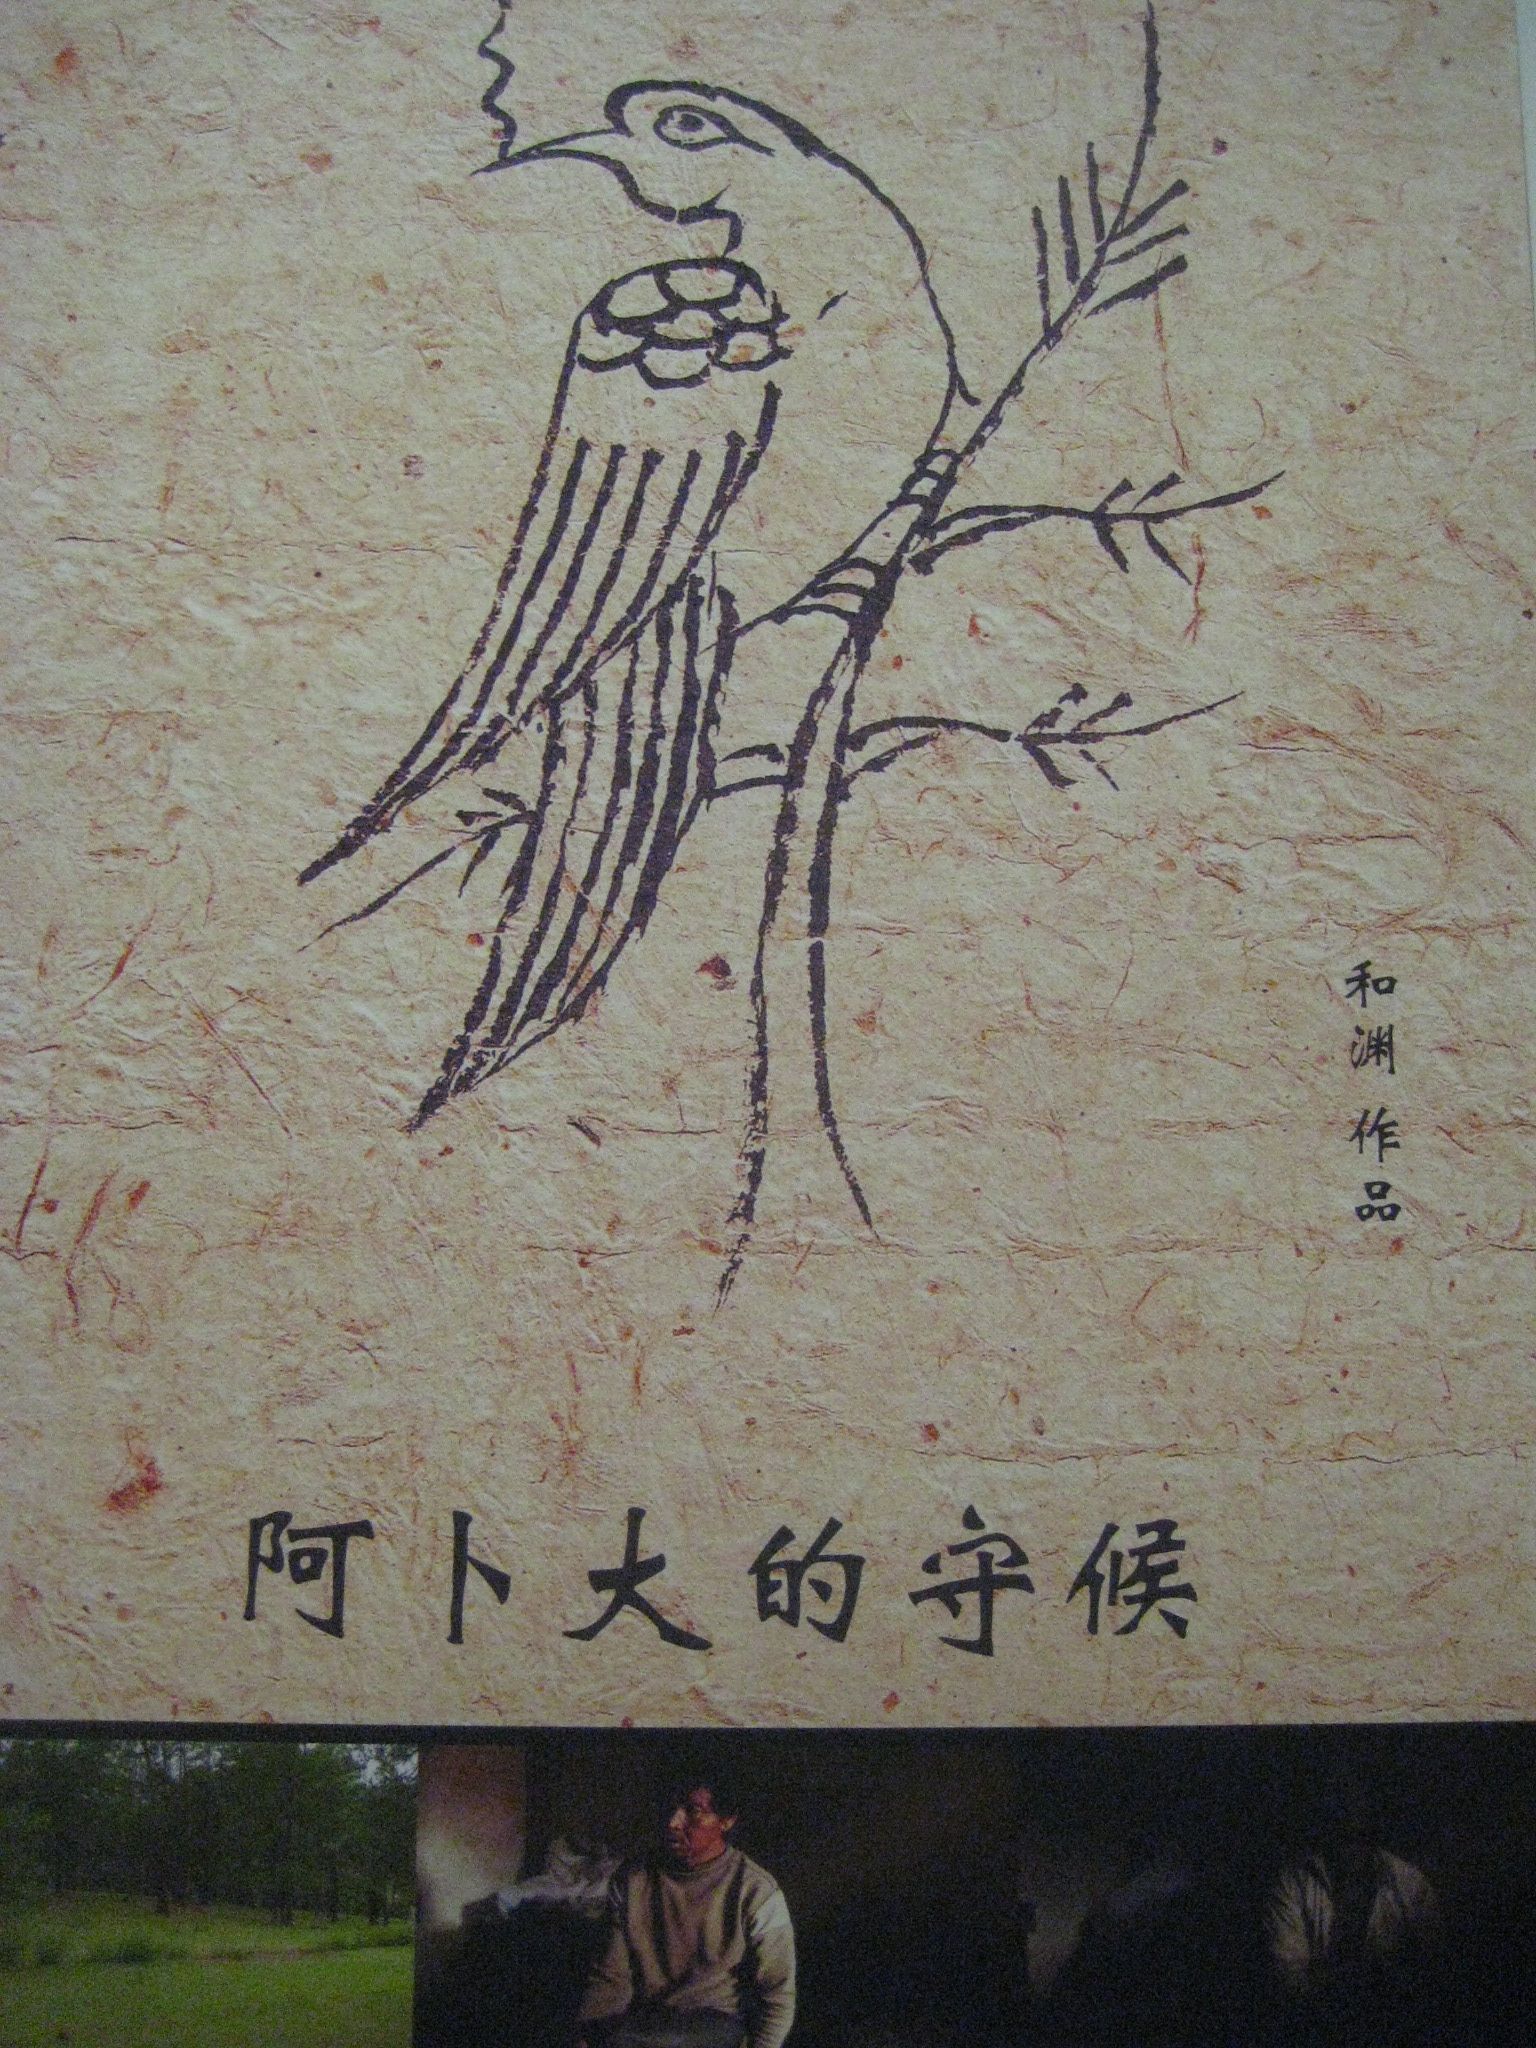 和渊 作品
阿卜大的守候